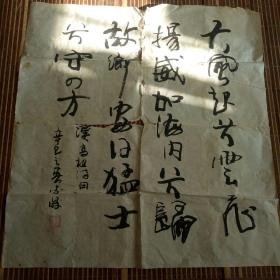 大風起兮雲飛
揚威加海内兮歸
故鄉安得猛士
兮守四方
漢高祖詩句
辛巳之